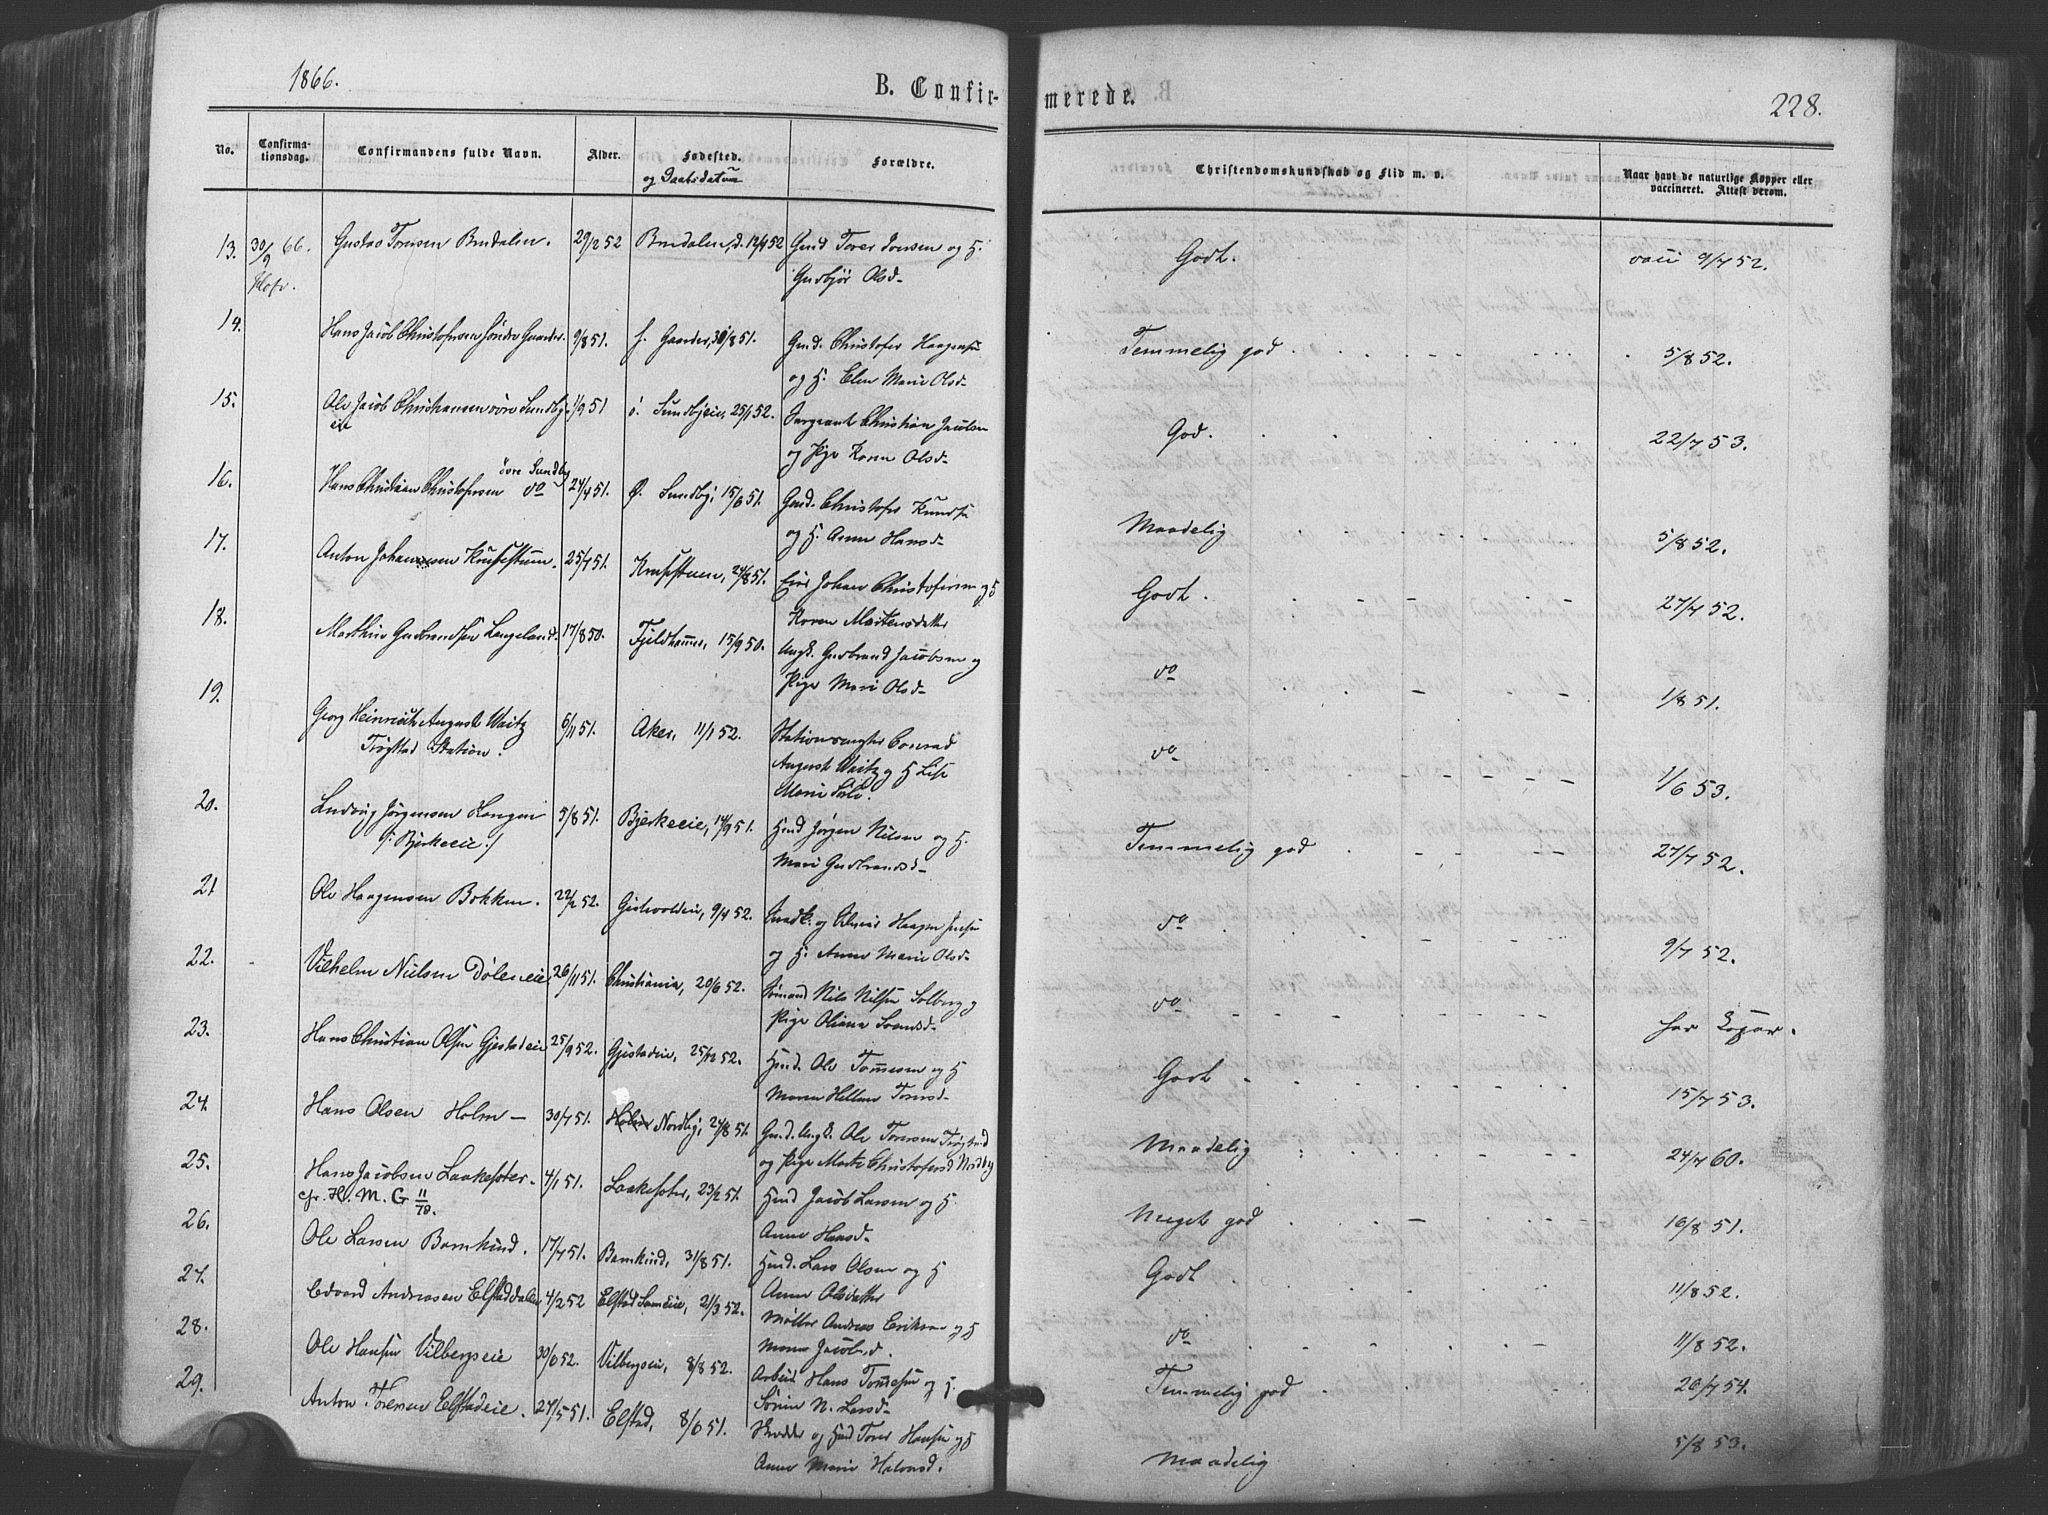 1866.
B. Confir-
merede.
228.
No.
Confirma-
tionsdag.
Confirmandens fulde Navn.
Alder.
Fødested.
og Daabsdatum
Forældre.
Christendomskundskab og Flid m. v.
Naar havt de naturlige Kopper eller
vaccineret. Attest derom.
13. 30/9 66. Gustav Torersen Brudalen. 29/2 52 Brudalen, d. 12/4 52 Gmd Torer Jonsen og H. Godt. vacc 9/7 52.
Hofv. Gudbjør Olsd-
14. Hans Jacob Christofersen Søndre Gaarder. 9/8 51. s. Gaarder, 31/8 51. Gmd. Christofer Haagensen Temmelig god 5/8 52.
og H. Elen Marie Olsd-
15. Ole Jacob Christiansen øvre Sundby 1/9 51 ø. Sundbyeie, 25/1 52. Sergeant Christian Jacobsen God. 22/7 53.
eie og Pige Karen Olsd-
16. Hans Christian Christofersen øvre Sundby do 24/4 51. Ø. Sundby, 15/6 51. Gmd. Christofer Knudsen Maadelig 5/8 52.
og H. Anne Hansd-
17. Anton Johannesen Krusestuen. 25/7 51. Krusestuen, 24/8 51. Eier Johan Christofersen og H Godt. 27/7 52.
Karen Martensdatter
18. Mathias Gudbrandsen Langeland. 17/8 50. Fjeldhammer, 15/9 50. Ungk. Gudbrand Jacobsen og do 1/8 51.
Pige Mari Olsd-
19. Georg Heinrich August Waitz 6/11 51. Aker, 11/1 52. Stationsmester Conrad do 1/6 53.
Trøgstad Station. August Waitz og H Lise
Marie
20. Ludvig Jørgensen Haugen 5/8 51. Bjerkeeie, 14/9 51. Hmd Jørgen Nilsen og H. Temmelig god 27/7 52.
/: Bjerkeeie :/ Mari Gudbrandsd-
21 Ole Haagensen Bakken. 22/2 52. Gislevoldeie, 9/4 52. Haagen Jensen do 9/7 52.
og H. Anne Marie Olsd-
22. Vilhelm Nielsen Døleneie 26/11 51. Christiania, 20/6 52. Sømand Nils Nilsen Solberg og do har Kopar.
Pige Oliana Svensd-
23. Hans Christian Olsen Gjestadeie 25/9 52. Gjestadeie, 25/12 52. Hmd. Ole Tommesen og H Godt 15/7 53.
Maren Hellene Torersd-
24. Hans Olsen Holm - 30/7 51. Holm Nordby, 24/8 51. Gmd. Ungk. Ole Torersen Trøgstad Maadelig 24/7 60.
og Pige Marte Christofersd Nordby
25. Hans Jacobsen Laakesæter. 4/1 51. Laakesæter, 23/2 51. Hmd Jacob Larsen og H. Meget god 16/8 51.
cfr. H. M. G 11/78. Anne Hansd-
26. Ole Larsen Barnkind. 17/7 51. Barnkind, 31/8 51. Hmd. Lars Olsen og H Godt 11/8 52.
Anne Olsdatter
27. Edvard Andreasen Elstaddalen 4/2 52 Elstad 21/3 52. Møller Andreas Eriksen og H do 11/8 52.
Maren Jacobsd.
28. Ole Hansen Vilbergseie 30/6 52. Vilbergseie, 8/8 52. Arbeid Hans Tommesen og H. Temmelig god 20/7 54.
N. Larsd-
29. Anton Torersen Elstadeie. 27/5 51. Elstad, 8/6 51. Skrædder og Hmd Torer Hansen og H Maadelig 5/8 53.
Anne Marie Halvorsd.